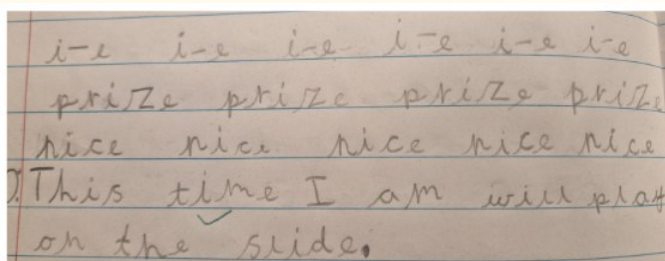 i-e i-e i-e i-e i-e i-e
prize prize prize prize
nice nice nice nice nice
This time I am will play
on the slide.